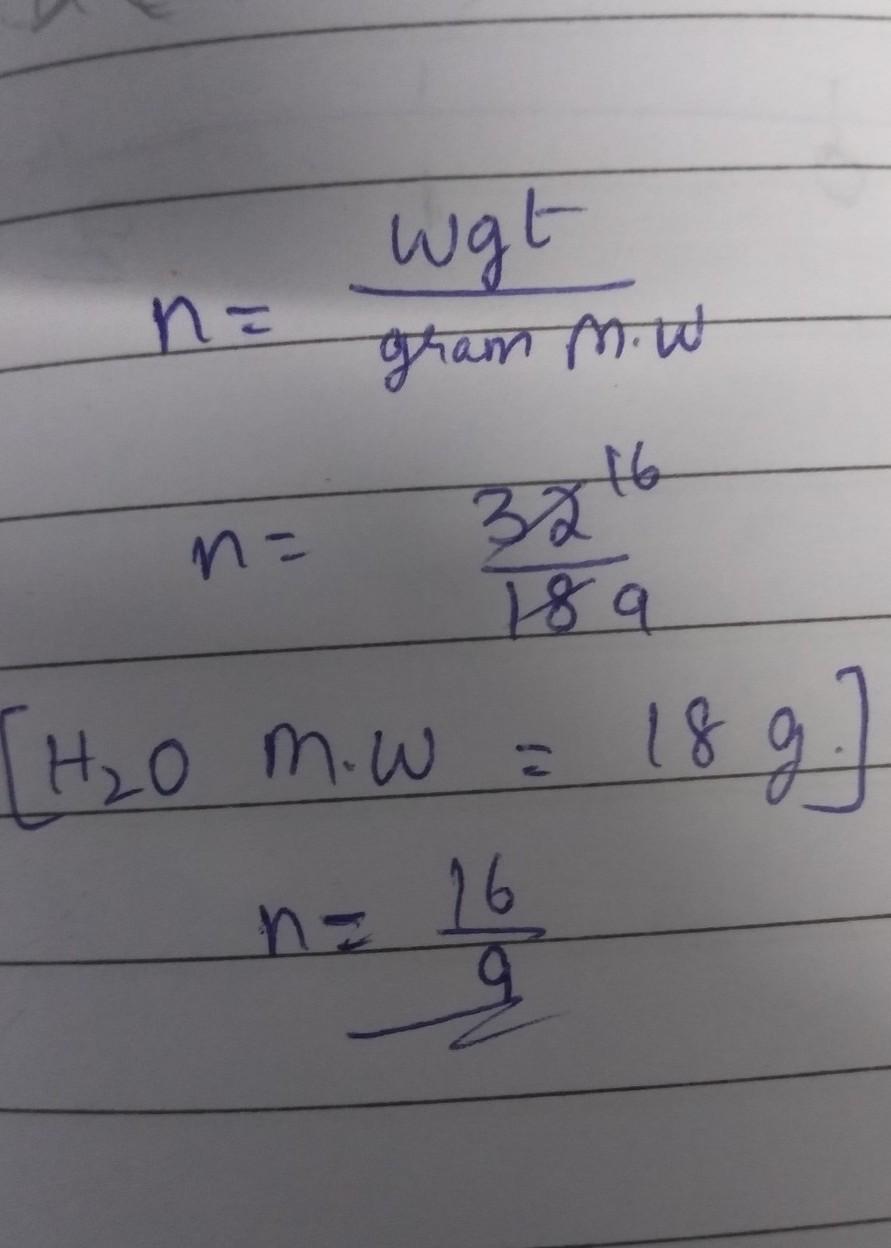 n = wgt / gram m.w
n = 32 16 / 18 9
[H₂O m.w = 18 g.]
n = 16 / 9